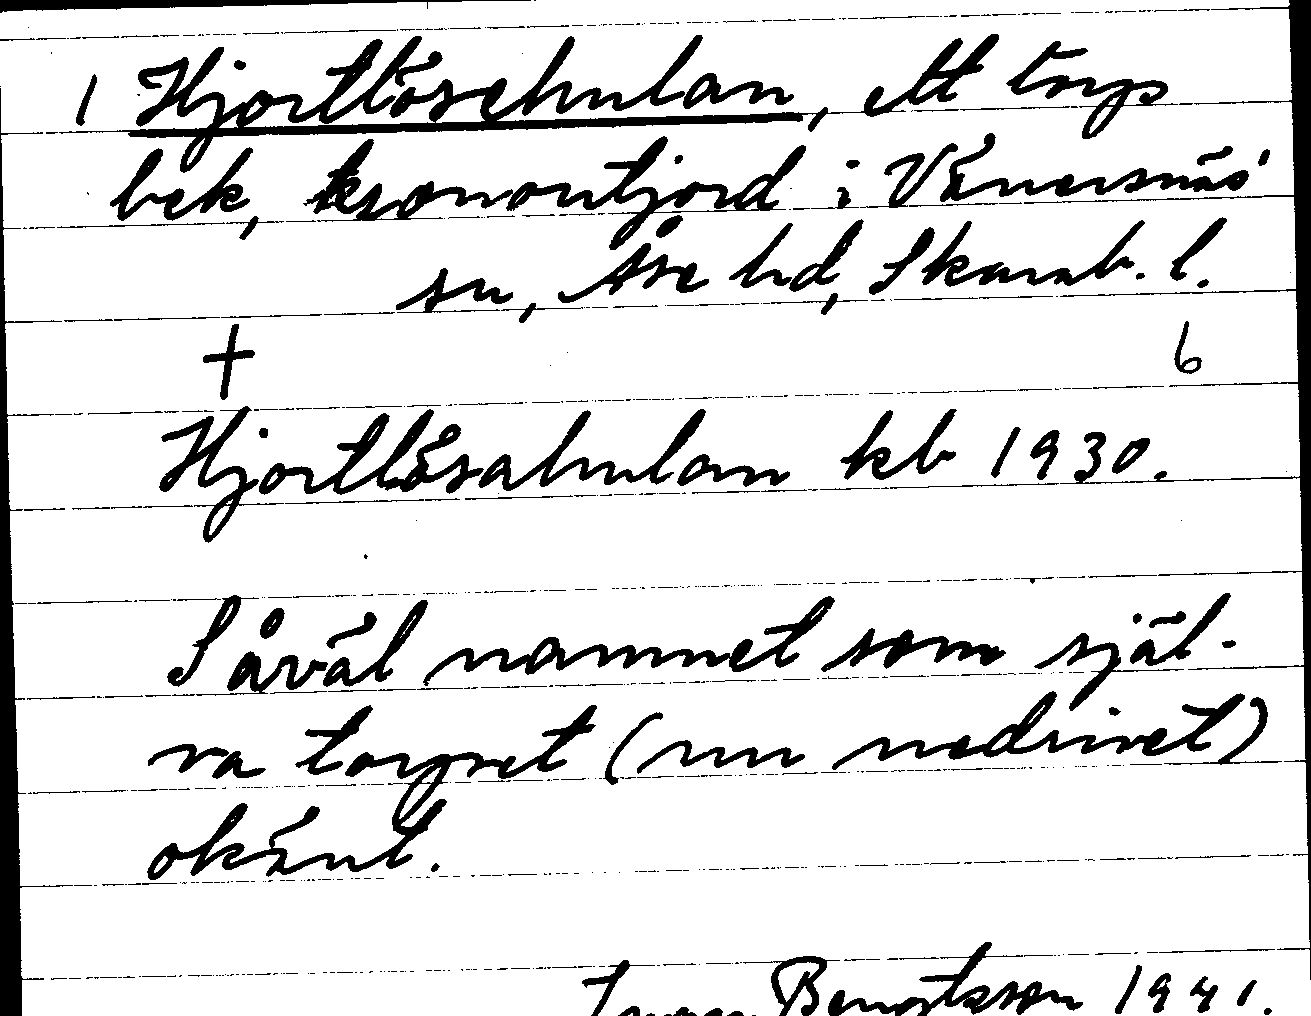 1 Hjortlösehulan, ett torp
bek, kronoutjord i Vänersnäs
sn, Åse hd, Skarab. l.
† 6
Hjortlåsahulan kb 1930.
Såväl namnet som själ-
va torpet (nu nedrivet)
okänt.
Bengtsson 1941.